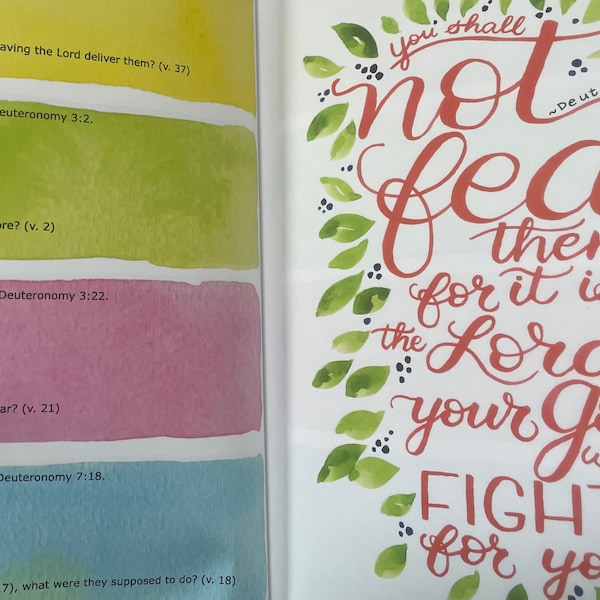 aving the Lord deliver them? (v. 37)
euteronomy 3:2.
ore? (v. 2)
Deuteronomy 3:22.
ar? (v. 21)
Deuteronomy 7:18.
7), what were they supposed to do? (v. 18)
you shall
not
~Deut
fea
them
for it is
the Lord
your God
w
FIGHT
for yo